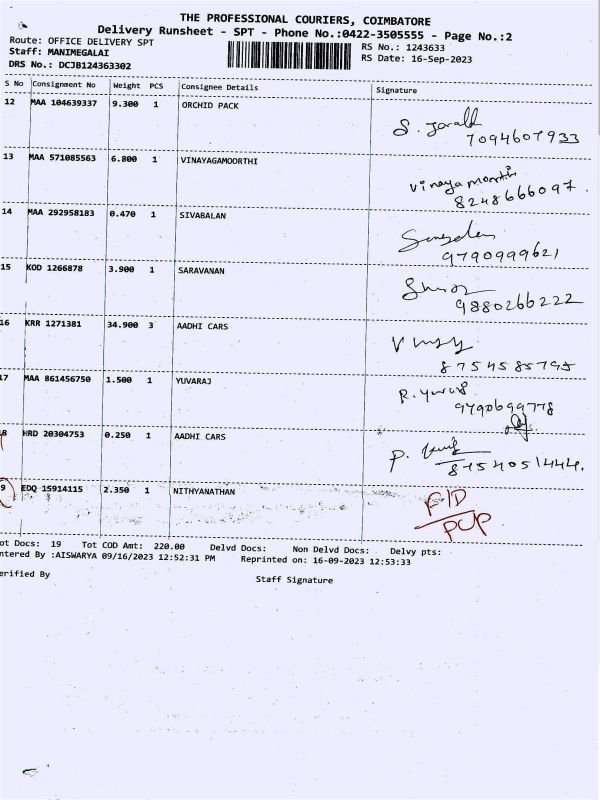 THE PROFESSIONAL COURIERS, COIMBATORE
Delivery Runsheet - SPT - Phone No.:0422-3505555 - Page No.:2
Route: OFFICE DELIVERY SPT
Staff: MANIMEGALAI
DRS No.: DCJB124363302
RS No.: 1243633
RS Date: 16-Sep-2023
S No Consignment No Weight PCS Consignee Details Signature
12 MAA 104639337 9.300 1 ORCHID PACK
7094607933
13 MAA 571085563 6.800 1 VINAYAGAMOORTHI
Vinayamoorthi
8248666097.
14 MAA 292958183 0.470 1 SIVABALAN
9790999621
15 KOD 1266878 3.900 1 SARAVANAN
9880266222
16 KRR 1271381 34.900 3 AADHI CARS
8754585795
17 MAA 861456750 1.500 1 YUVARAJ
R. Yuvaraj
9790699778
8 HRD 20304753 0.250 1 AADHI CARS
9 EDQ 15914115 2.350 1 NITHYANATHAN
F/D
PUP
ot Docs: 19 Tot COD Amt: 220.00 Delvd Docs: Non Delvd Docs: Delvy pts:
ntered By :AISWARYA 09/16/2023 12:52:31 PM Reprinted on: 16-09-2023 12:53:33
erified By
Staff Signature